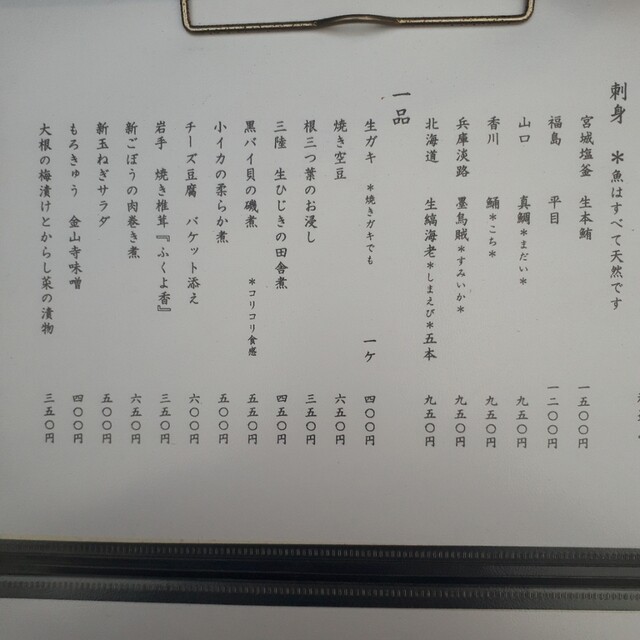 刺身 *魚はすべて天然です
宮城塩釜 生本鮪 一五〇〇円
福島 平目 一二〇〇円
山口 真鯛*まだい* 九五〇円
香川 鯒*こち* 九五〇円
兵庫淡路 墨烏賊*すみいか* 九五〇円
北海道 生縞海老*しまえび*五本 九五〇円
一品
生ガキ *焼きガキでも 一ケ 四〇〇円
焼き空豆 六五〇円
根三つ葉のお浸し 三五〇円
三陸 生ひじきの田舎煮 四五〇円
黒バイ貝の磯煮 *コリコリ食感 五五〇円
小イカの柔らか煮 五〇〇円
チーズ豆腐 バケット添え 六〇〇円
岩手 焼き椎茸『ふくよ香』 三五〇円
新ごぼうの肉巻き煮 六五〇円
新玉ねぎサラダ 五〇〇円
もろきゅう 金山寺味噌 四〇〇円
大根の梅漬けとからし菜の漬物 三五〇円